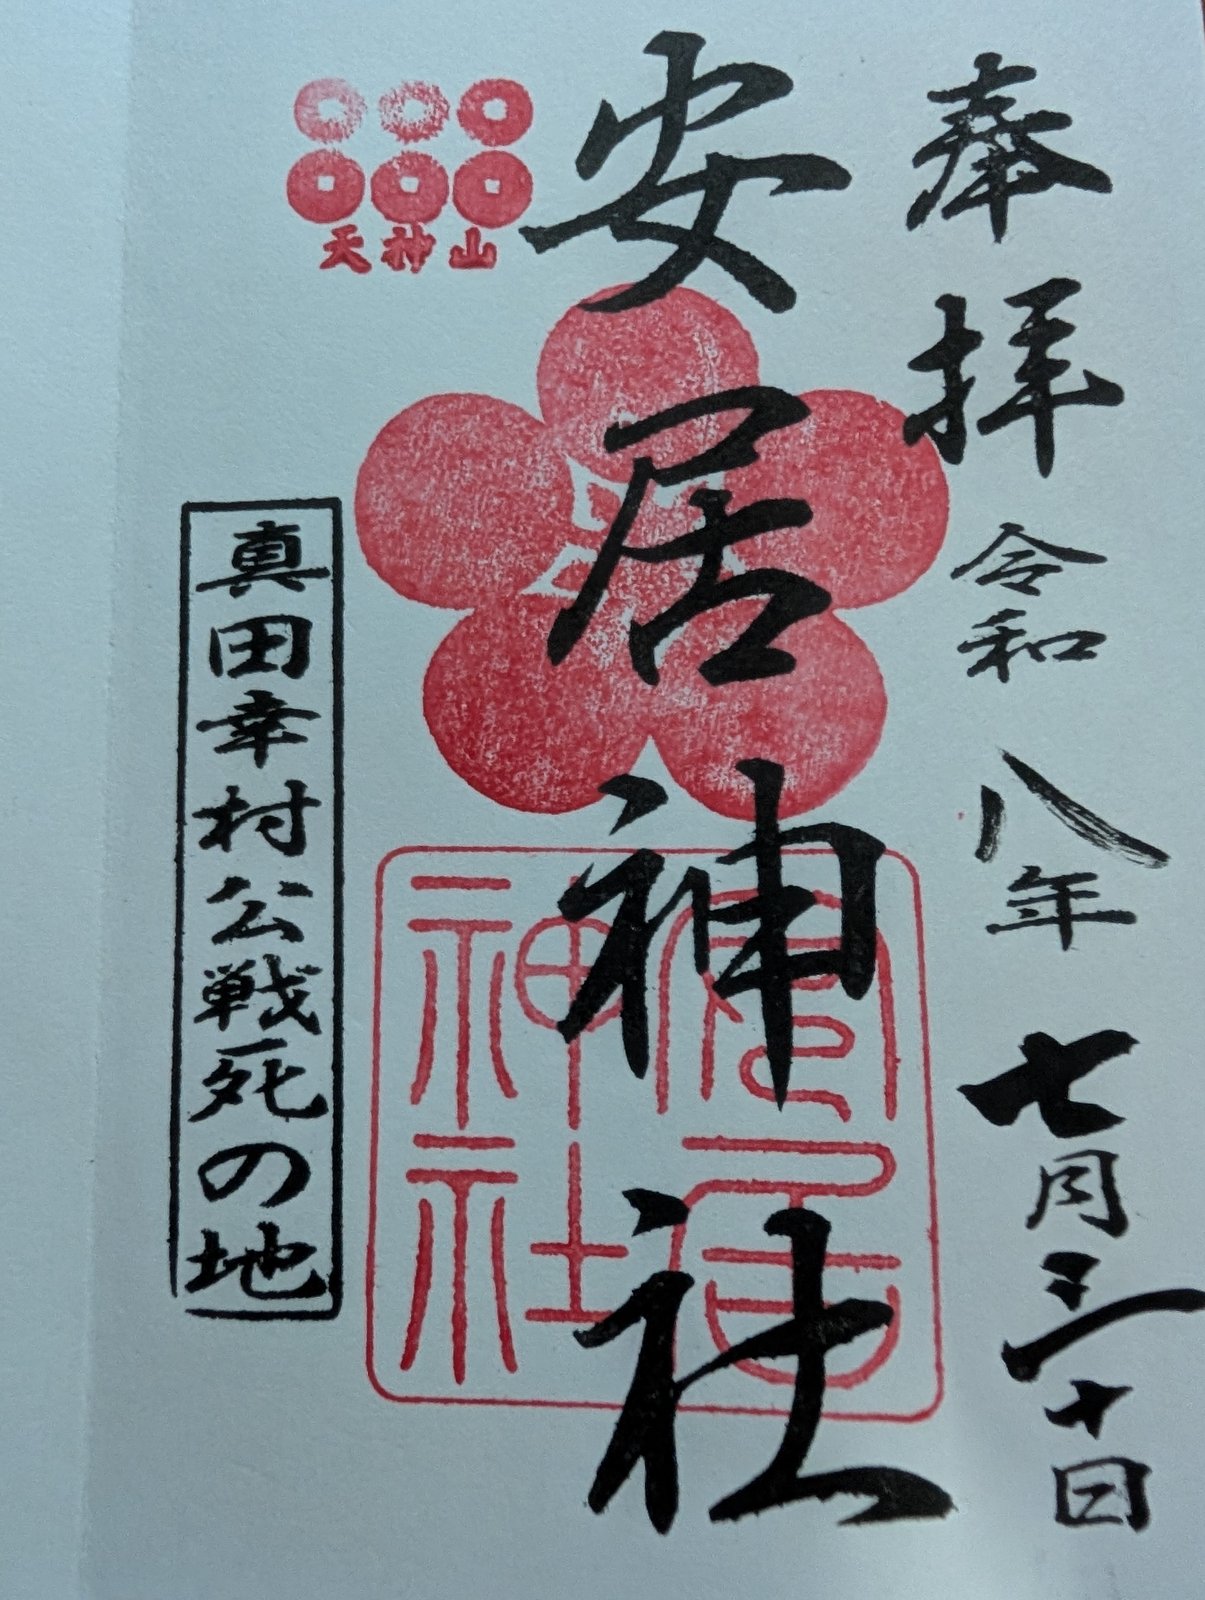 奉拝 令和八年七月三十日
安居神社
天神山
安居
神社
真田幸村公戦死の地